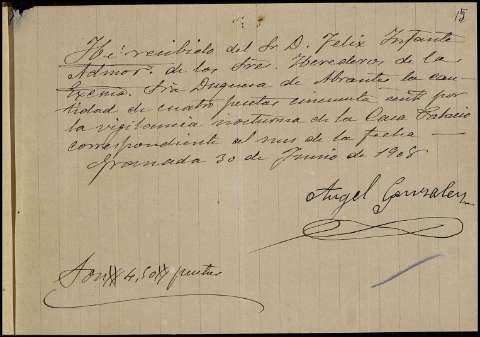 15
He recibido del Sr. D. Felix Infante
Admor. de los Sres. Herederos de la
Exma. Sra Duquesa de Abrantes la can-
tidad de cuatro pesetas cincuenta cent por
la vigilancia nocturna de la Casa Palacio
correspondiente al mes de la fecha
Granada 30 de Junio de 1908
Angel Gonzalez
Son 4,50 pesetas